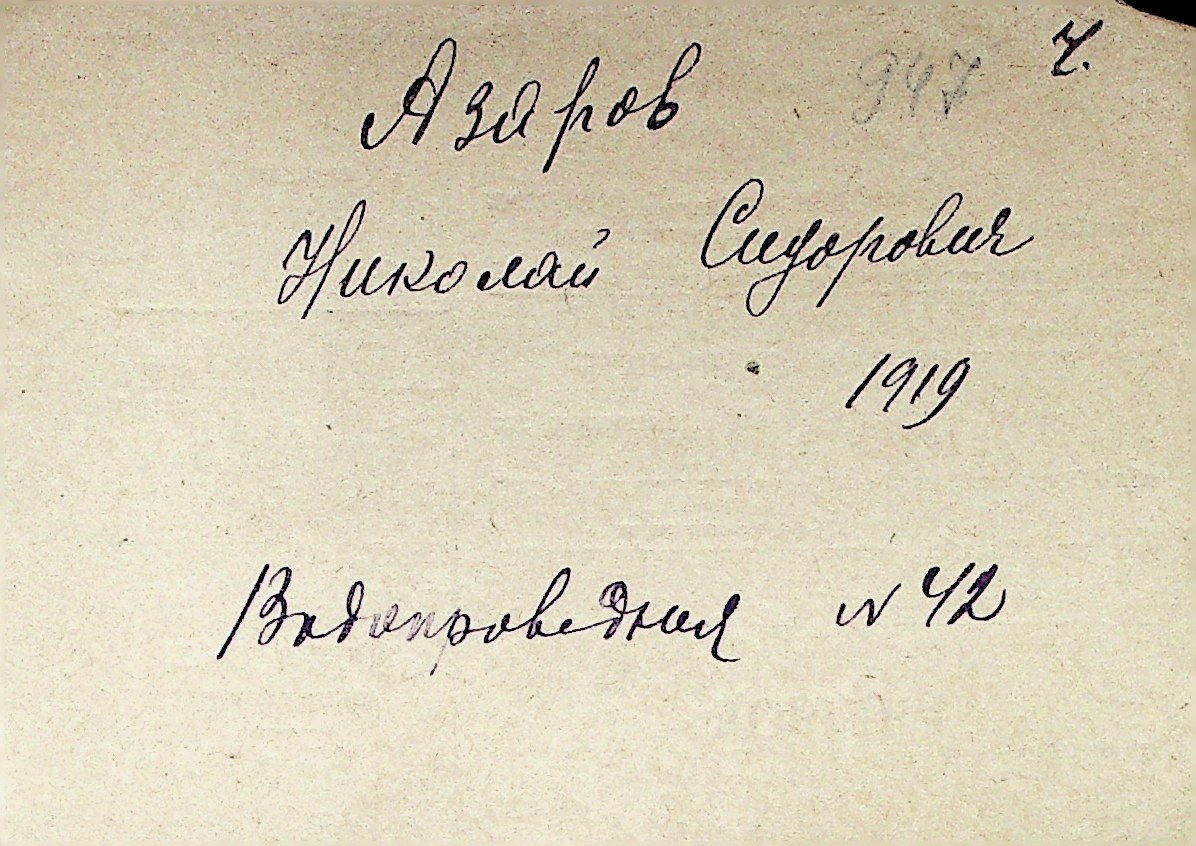 947 Ч.
Азаров
Николай Сидорович
1919
Водопроводная № 42